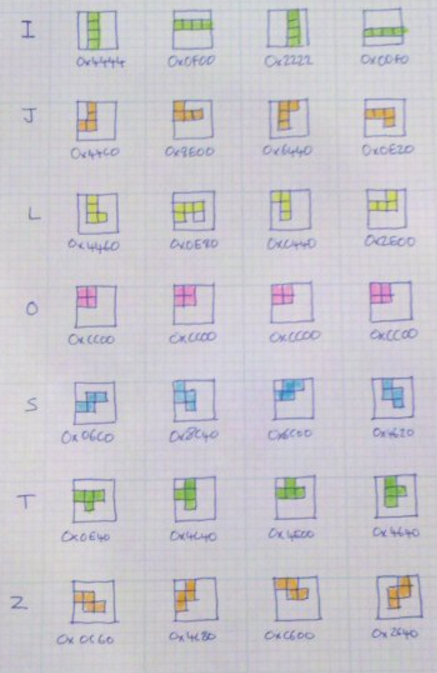 I
0x4444 0x0F00 0x2222 0x00F0
J
0x44C0 0x8E00 0x6440 0x0E20
L
0x4460 0x0E80 0xC440 0x2E00
O
0xCC00 0xCC00 0xCC00 0xCC00
S
0x06C0 0x8C40 0x6C00 0x4620
T
0x0E40 0x4C40 0x4E00 0x4640
Z
0x0C60 0x4C80 0xC600 0x2640